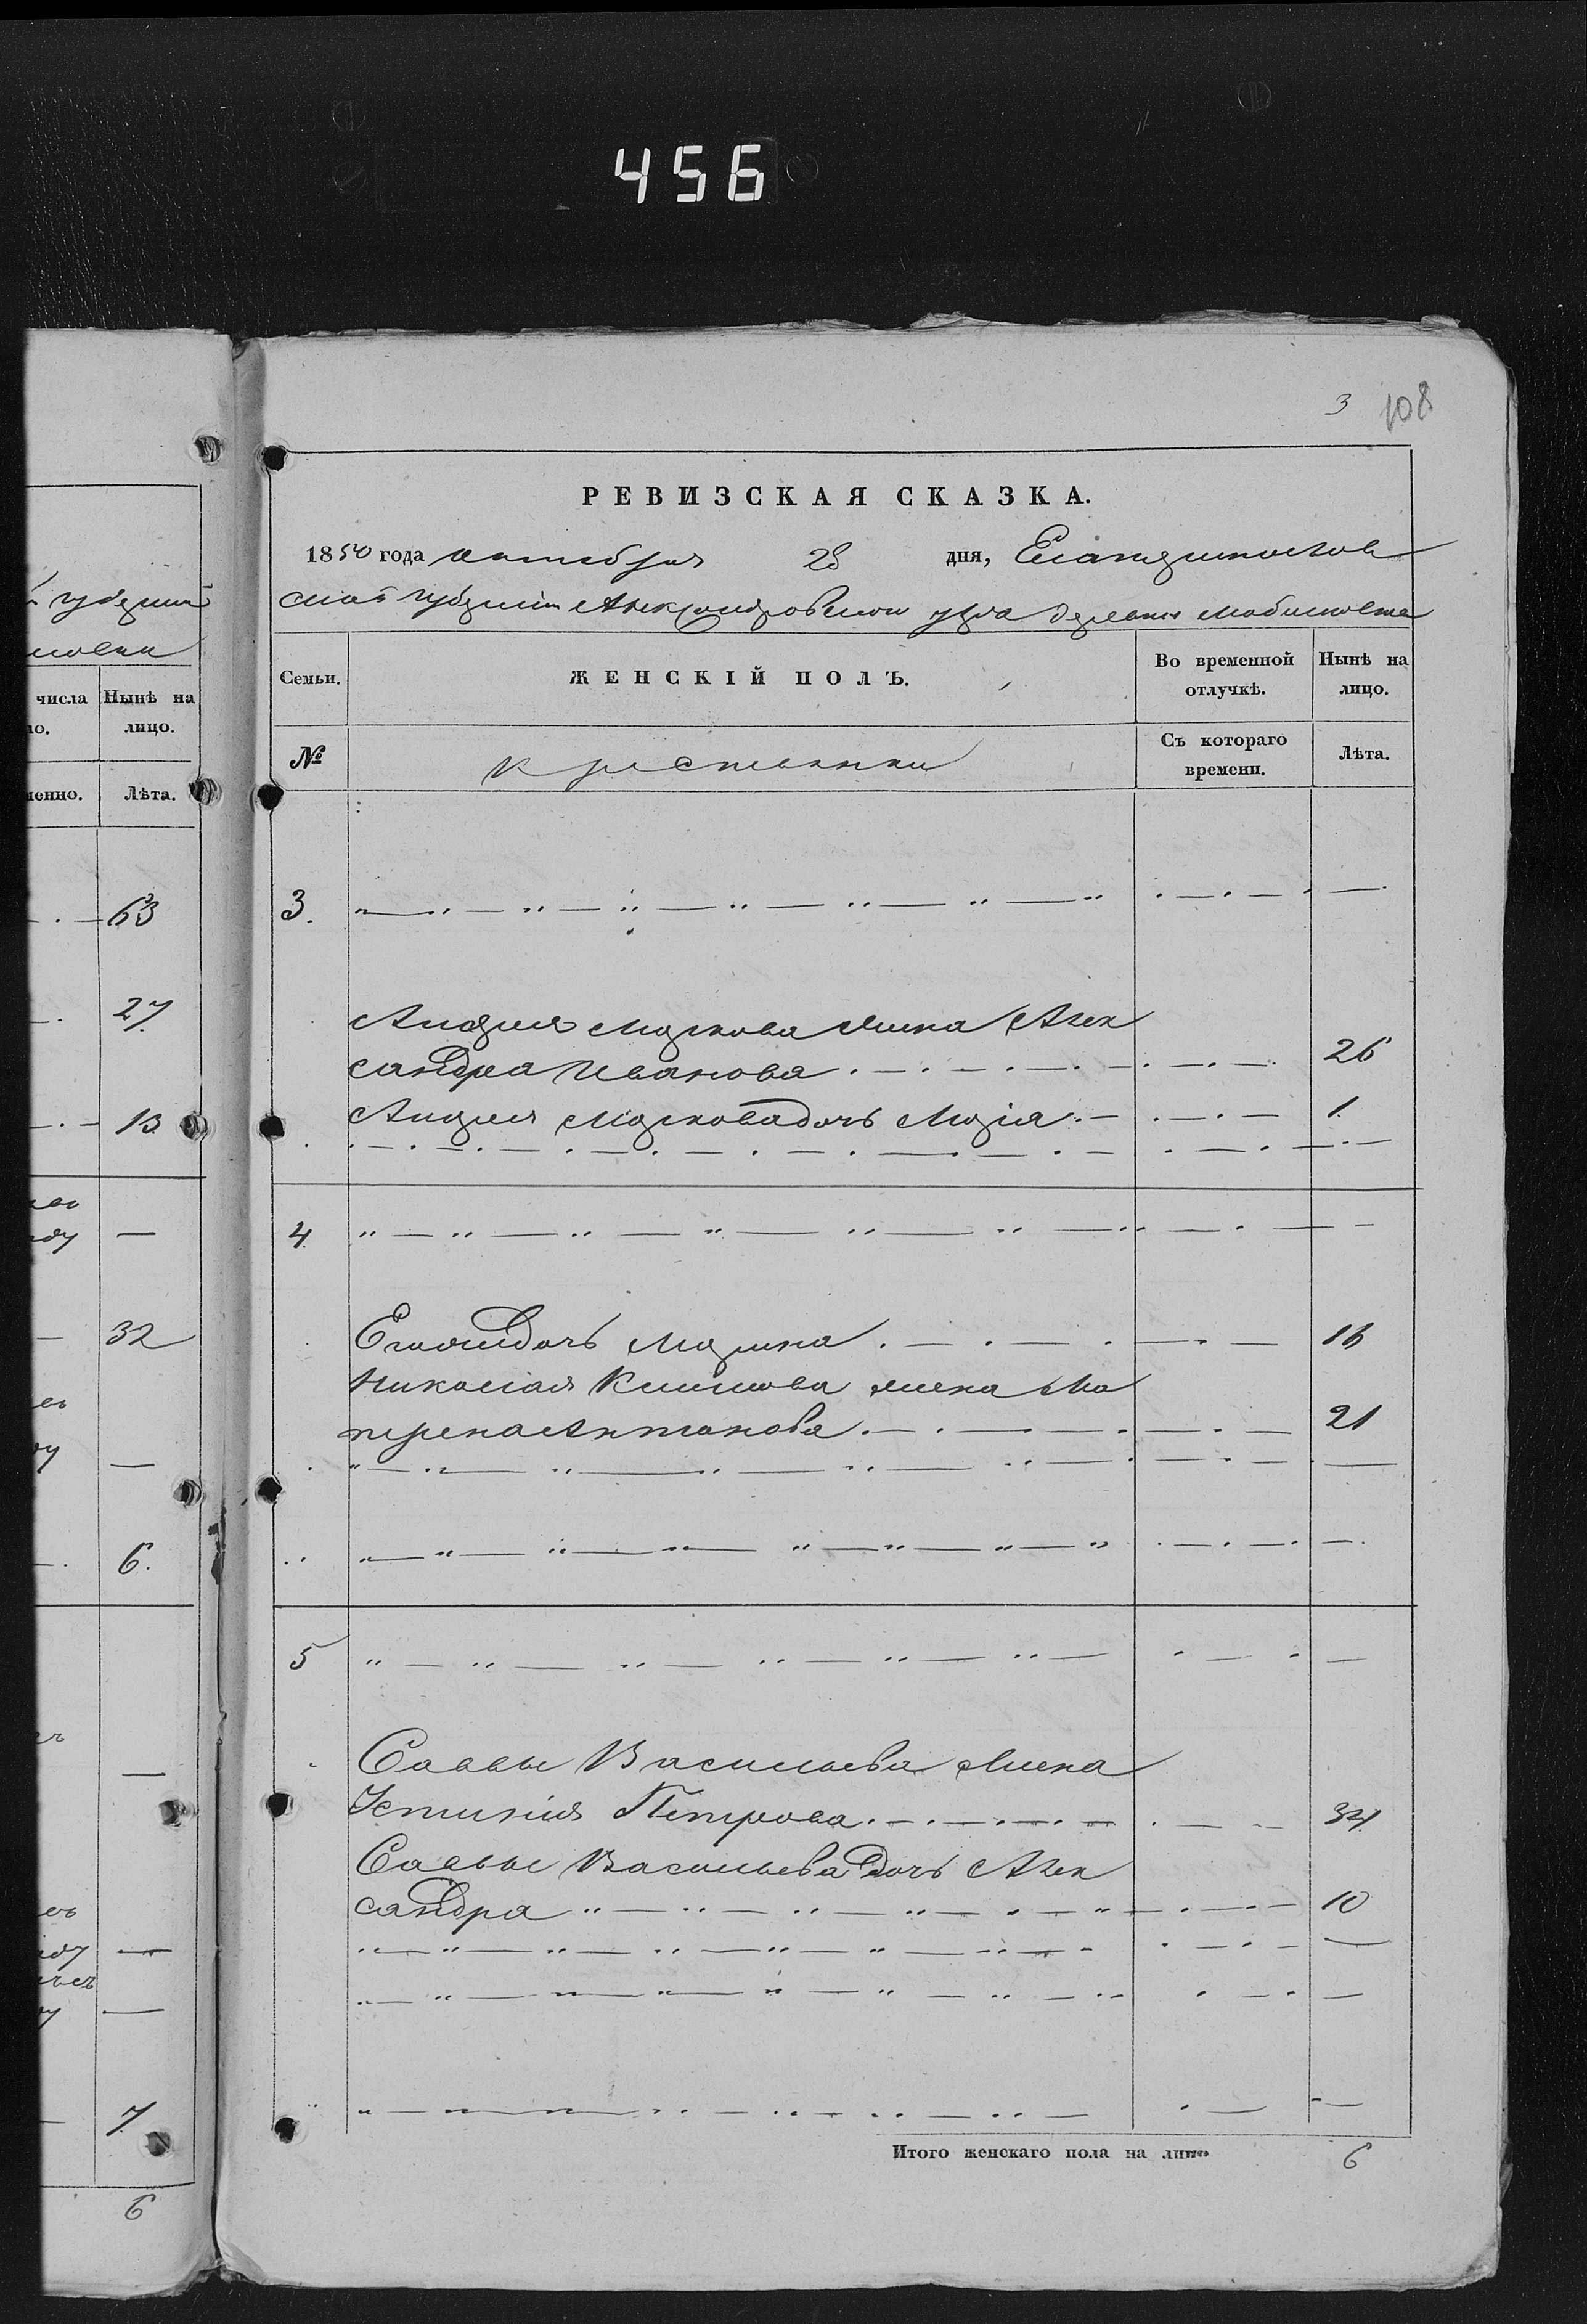 456
3 108
РЕВИЗСКАЯ СКАЗКА.
1850 года октября 28 дня, Екатеринослав
ской губернии Александровского уезда деревни
Семьи. ЖЕНСКІЙ ПОЛЪ. Во временной отлучкѣ. Нынѣ на лицо.
№ крестьянки Съ котораго времени. Лѣта.
3.
Андрея Маркова жена Алек
сандра Иванова 26
Андрея Маркова дочь Марія 1.
4.
дочь Марина 16
Николая Климова жена Ма
трена Антонова 21
5
Саввы Васильева жена
Устинія Петрова 34
Саввы Васильева дочь Алек
сандра 10
Итого женскаго пола на лицо 6
губернии
числа Нынѣ на
лицо.
Лѣта.
63
27.
13
32
6.
7.
6